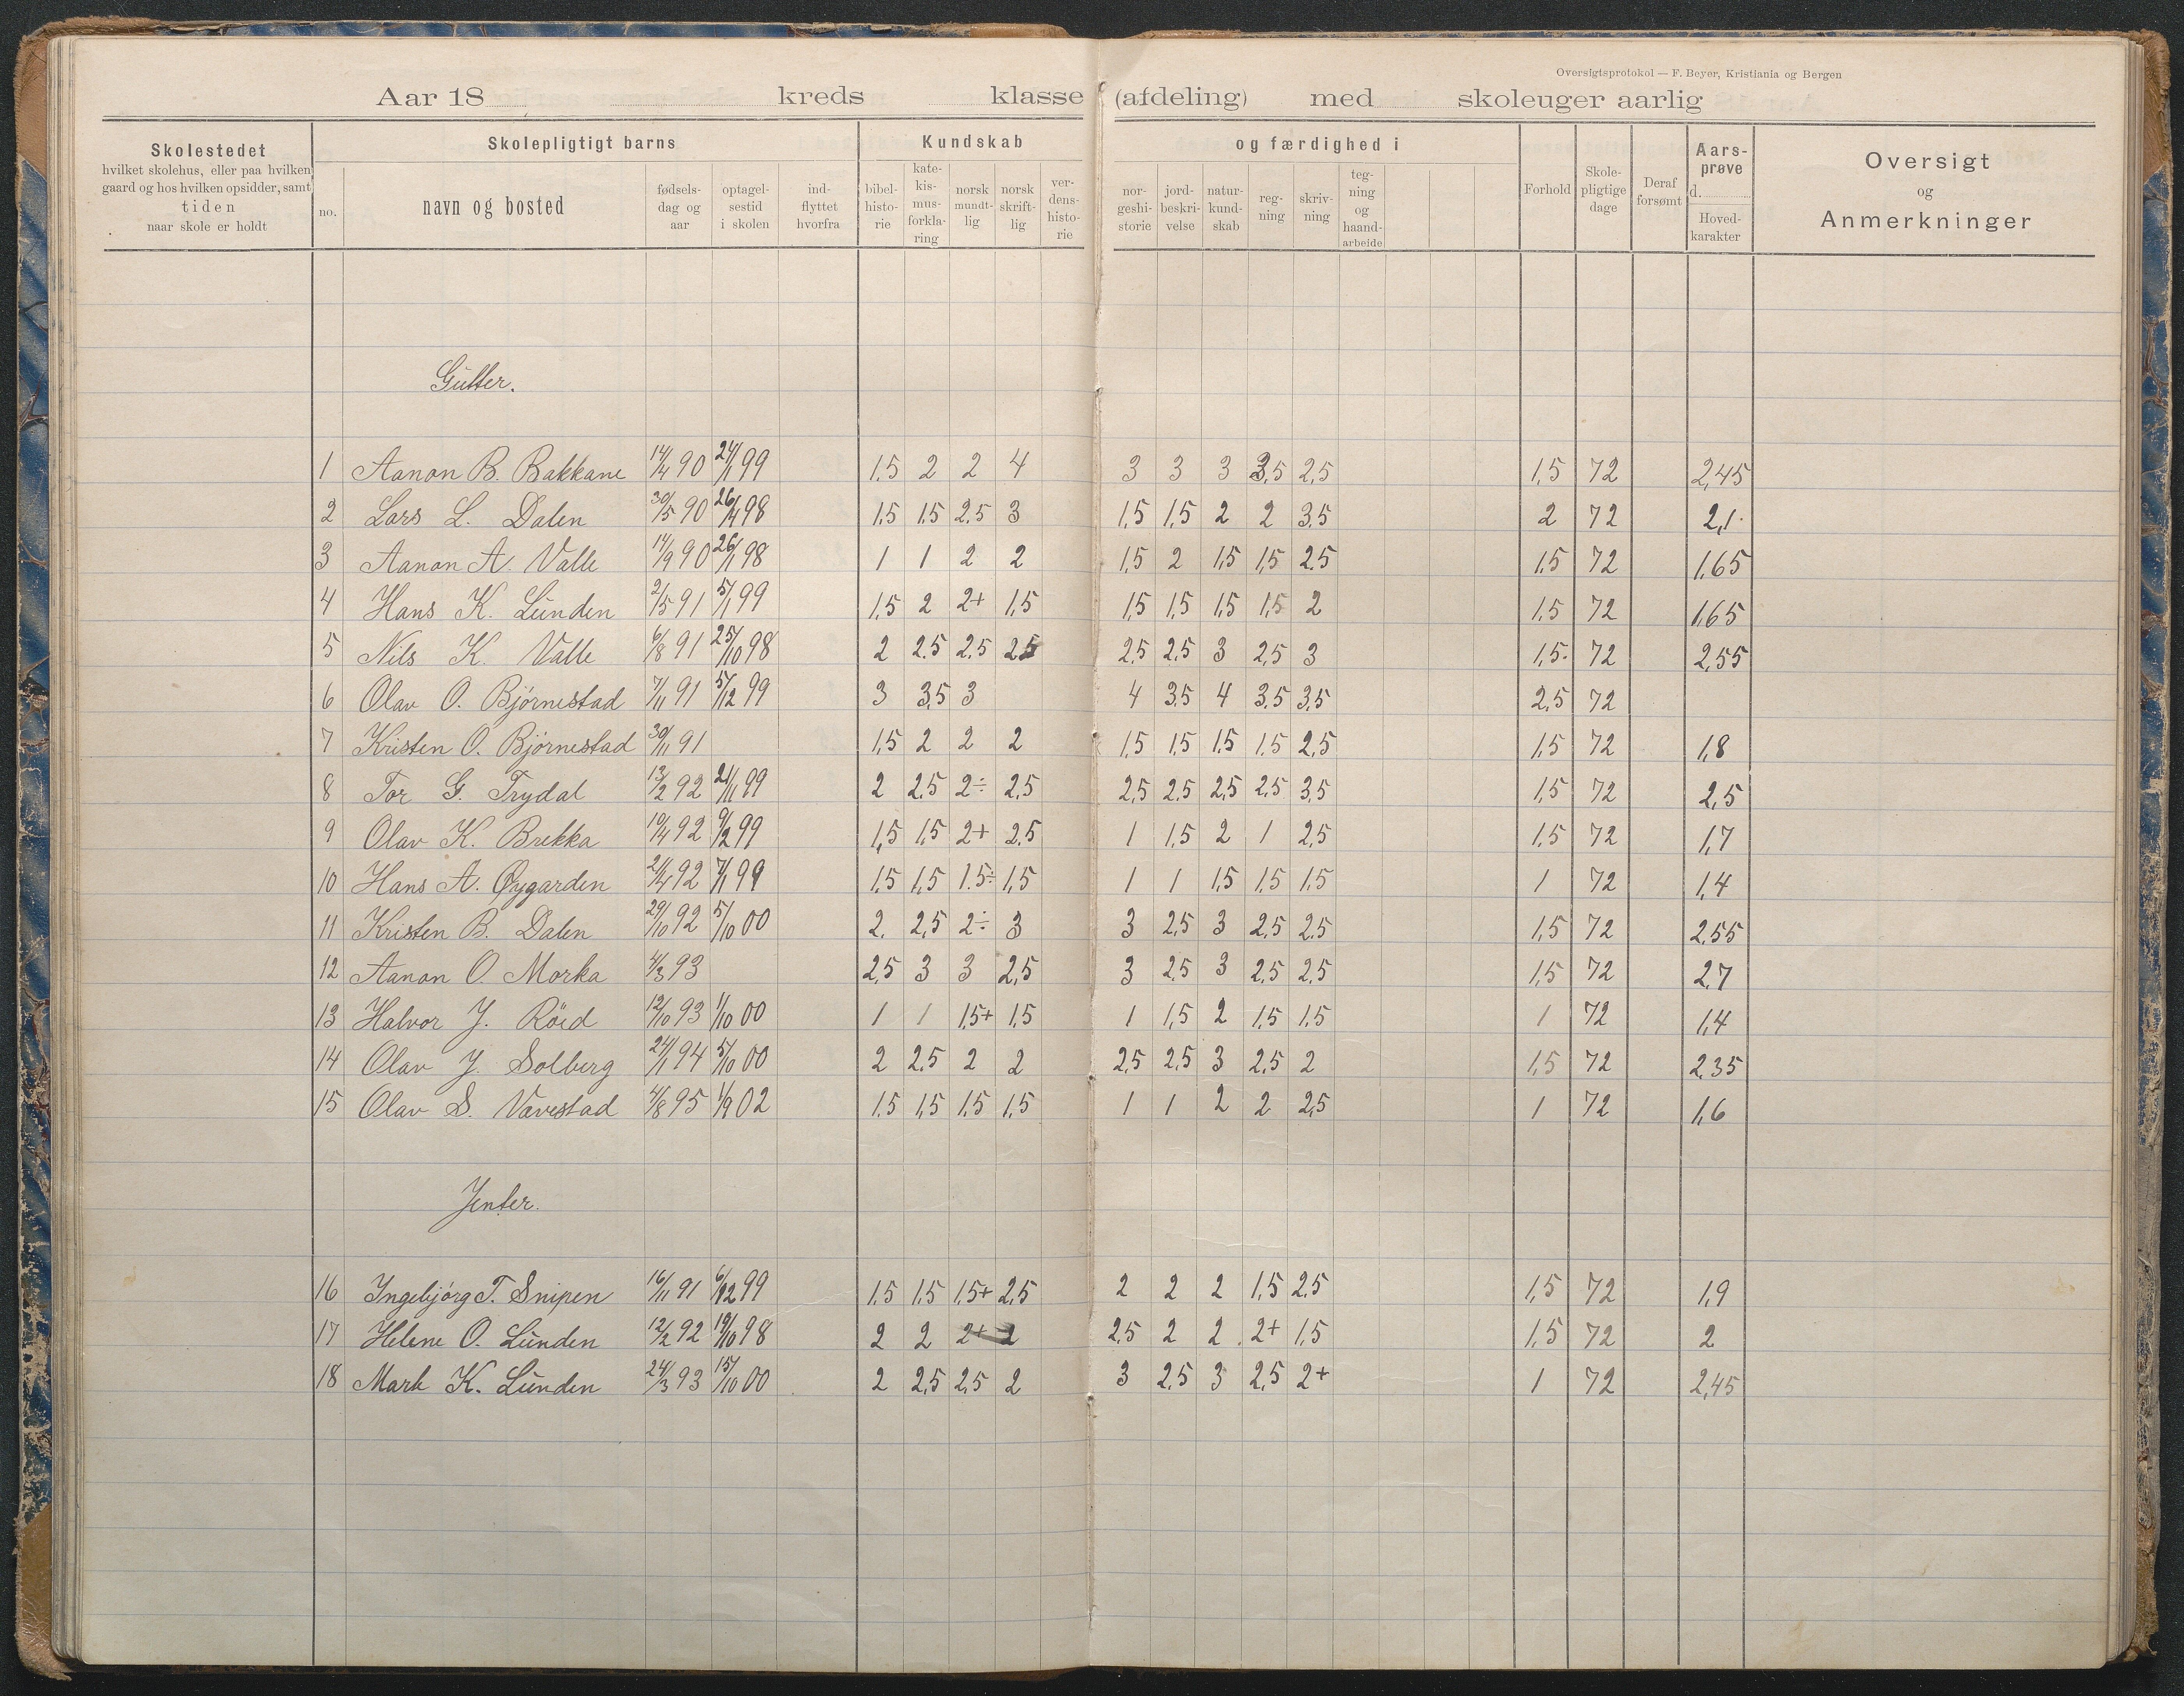 Oversigtsprotokol — F. Beyer, Kristiania og Bergen
Aar 18 kreds klasse (afdeling) med skoleuger aarlig
Skolestedet
hvilket skolehus, eller paa hvilken
gaard og hos hvilken opsidder, samt
tiden
naar skole er holdt
Skolepligtigt barns
no.
navn og bosted
fødsels-
dag og
aar
optagel-
sestid
i skolen
ind-
flyttet
hvorfra
Kundskab
bibel-
histo-
rie
kate-
kis-
mus-
forkla-
ring
norsk
mundt-
lig
norsk
skrift-
lig
ver-
dens-
histo-
rie
og færdighed i
nor-
geshi-
storie
jord-
beskri-
velse
natur-
kund-
skab
reg-
ning
skriv-
ning
teg-
ning
og
haand-
arbeide
Forhold
Skole-
pligtige
dage
Deraf
forsømt
Aars-
prøve
d.
Hoved-
karakter
Oversigt
og
Anmerkninger
Gutter.
1 Aanon B. Bakkane 14/4 90 24/1 99 1.5 2 2 4 3 3 3 3,5 2,5 1,5 72 2,45
2 Lars L. Dalen 30/5 90 26/4 98 1,5 1.5 2.5 3 1,5 1,5 2 2 3,5 2 72 2,1
3 Aanon A. Valle 14/9 90 26/1 98 1 1 2 2 1,5 2 1,5 1,5 2.5 1.5 72 1,65
4 Hans K. Lunden 2/5 91 5/1 99 1,5 2 2+ 1,5 1,5 1,5 1,5 1,5 2 1,5 72 1,65
5 Nils K. Valle 6/8 91 25/10 98 2 2.5 2.5 2.5 2,5 2,5 3 2,5 3 1,5. 72 2,55
6 Olav O. Bjørnestad 7/11 91 5/12 99 3 3,5 3 4 3,5 4 3.5 3,5 2,5 72
7 Kristen O. Bjørnestad 30/11 91 1,5 2 2 2 1,5 1,5 1,5 1.5 2,5 1,5 72 1,8
8 Tor G. Trydal 13/2 92 21/11 99 2 2.5 2÷ 2,5 2,5 2,5 2,5 2,5 3,5 1,5 72 2,5
9 Olav K. Brekka 19/4 92 9/2 99 1,5 1,5 2+ 2,5 1 1,5 2 1 2,5 1,5 72 1,7
10 Hans A. Øygarden 21/4 92 7/1 99 1,5 1,5 1.5÷ 1,5 1 1 1,5 1,5 1,5 1 72 1,4
11 Kristen B. Dalen 29/10 92 5/10 00 2. 2,5 2÷ 3 3 2,5 3 2,5 2,5 1,5 72 2,55
12 Aanon O. Morka 4/3 93 2,5 3 3 2,5 3 2,5 3 2,5 2,5 1,5 72 2,7
13 Halvor J. Röid 12/10 93 1/10 00 1 1 1,5+ 1,5 1 1,5 2 1,5 1,5 1 72 1,4
14 Olav J. Solberg 24/1 94 5/10 00 2 2,5 2 2 2,5 2,5 3 2,5 2 1,5 72 2,35
15 Olav S. Vavestad 4/8 95 1/9 02 1.5 1,5 1.5 1,5 1 1 2 2 2,5 1 72 1,6
Jenter.
16 Ingebjørg T. Snipen 16/11 91 6/12 99 1.5 1.5 1,5+ 2,5 2 2 2 1,5 2,5 1,5 72 1,9
17 Helene O. Lunden 12/2 92 19/10 98 2 2 2+ 2 2,5 2 2 2+ 1,5 1,5 72 2
18 Marh K. Lunden 24/3 93 15/10 00 2 2,5 2,5 2 3 2,5 3 2,5 2+ 1 72 2,45